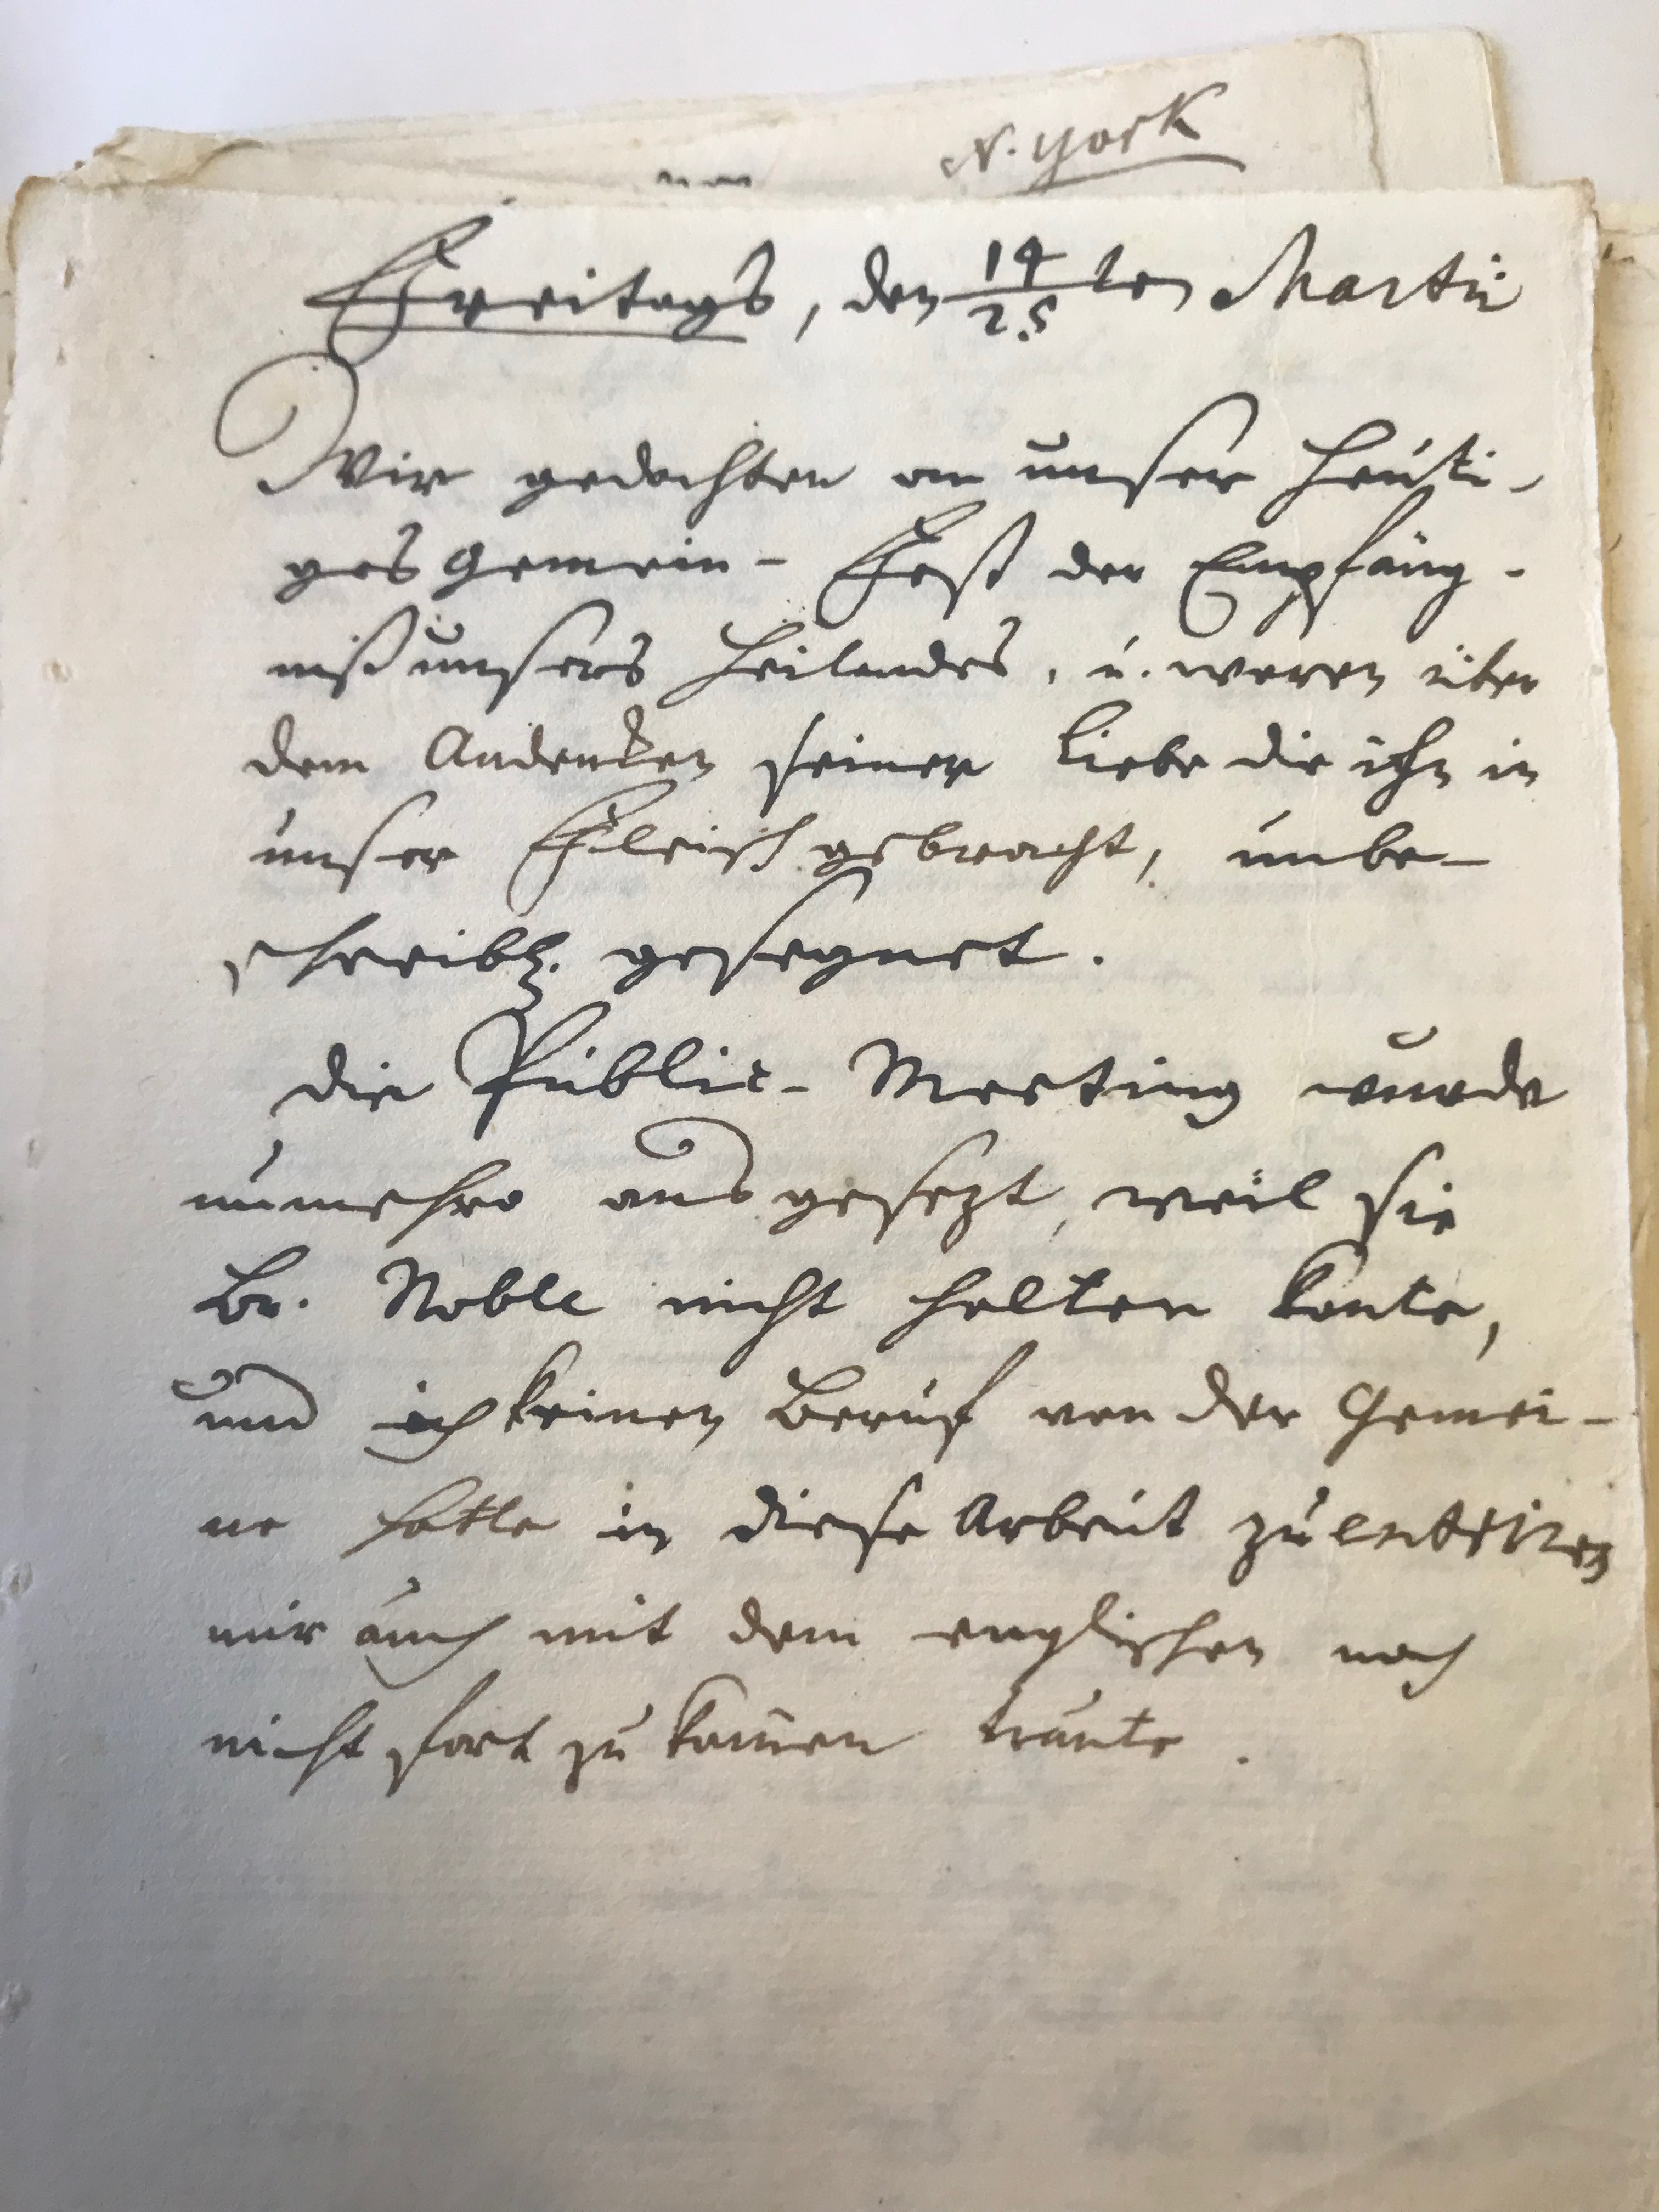 N. York
Freitags, den 14/25 ten Martii
Wir gedachten an unser heuti-
ges Gemein- Fest der Empfäng-
niß unsers Heilandes, u. waren über
dem Andencken seiner Liebe die ihn in
unser Fleisch gebracht, unbe-
schreibl. gesegnet.
Die Public- Meeting wurde
nunmehro ausgesezt, weil sie
Br. Noble nicht halten konte,
und ich keinen Beruf von der Gemei-
ne hatte in diese Arbeit zu entriren
mir auch mit dem englischen noch
nicht fort zu kom̄en traute.